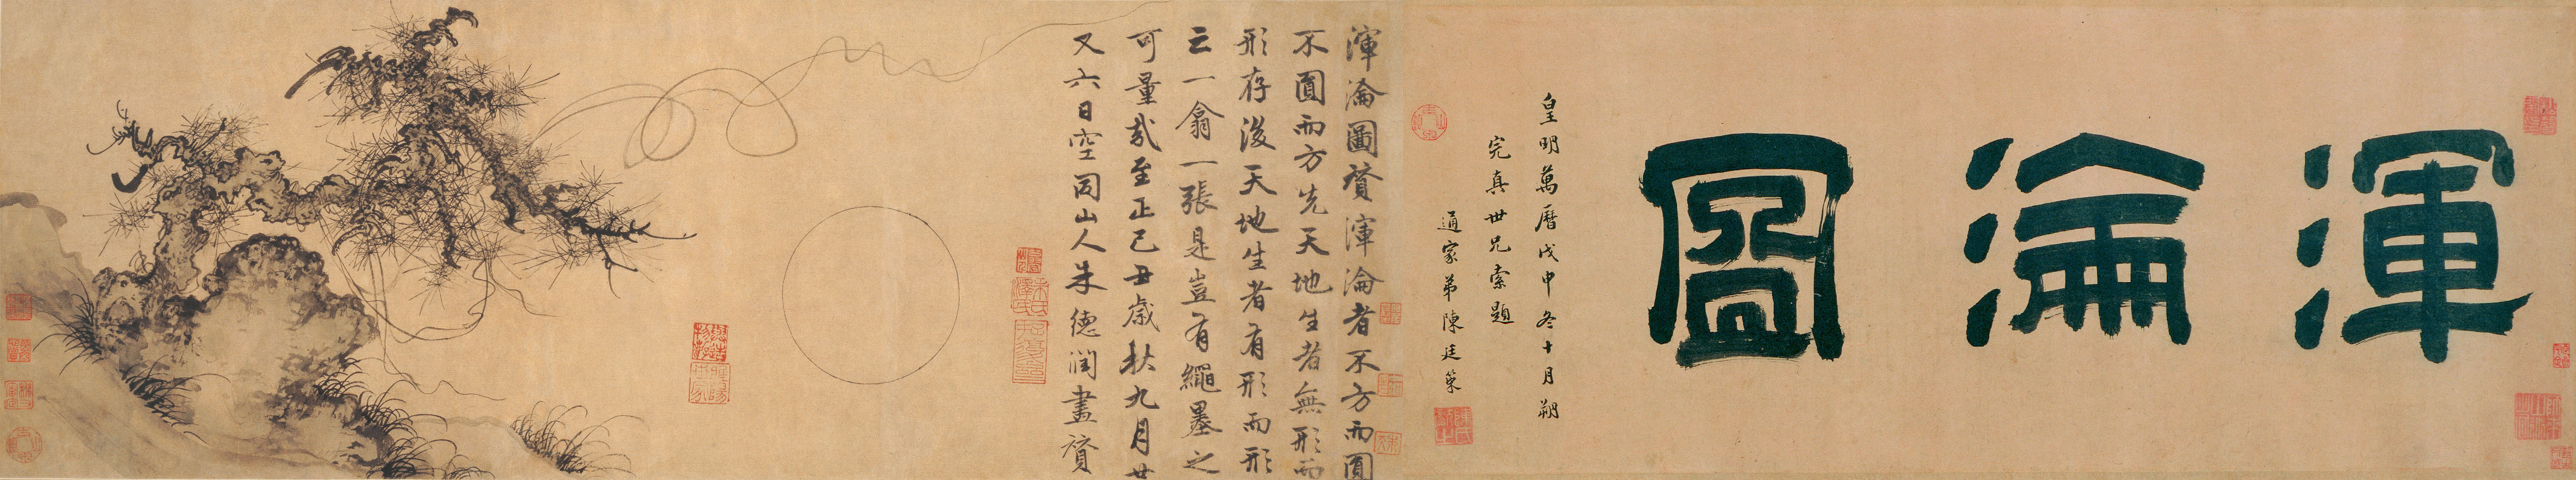 渾淪圖
皇明萬曆戊申冬十月朔
完真世兄索題
通家弟陳廷策
渾淪圖贊渾淪者不方而圓
不圓而方先天地生者無形而
形存後天地生者有形而形
亡一翕一張是豈有繩墨之
可量哉至正己丑歲秋九月廿
又六日空同山人朱德潤畫贊